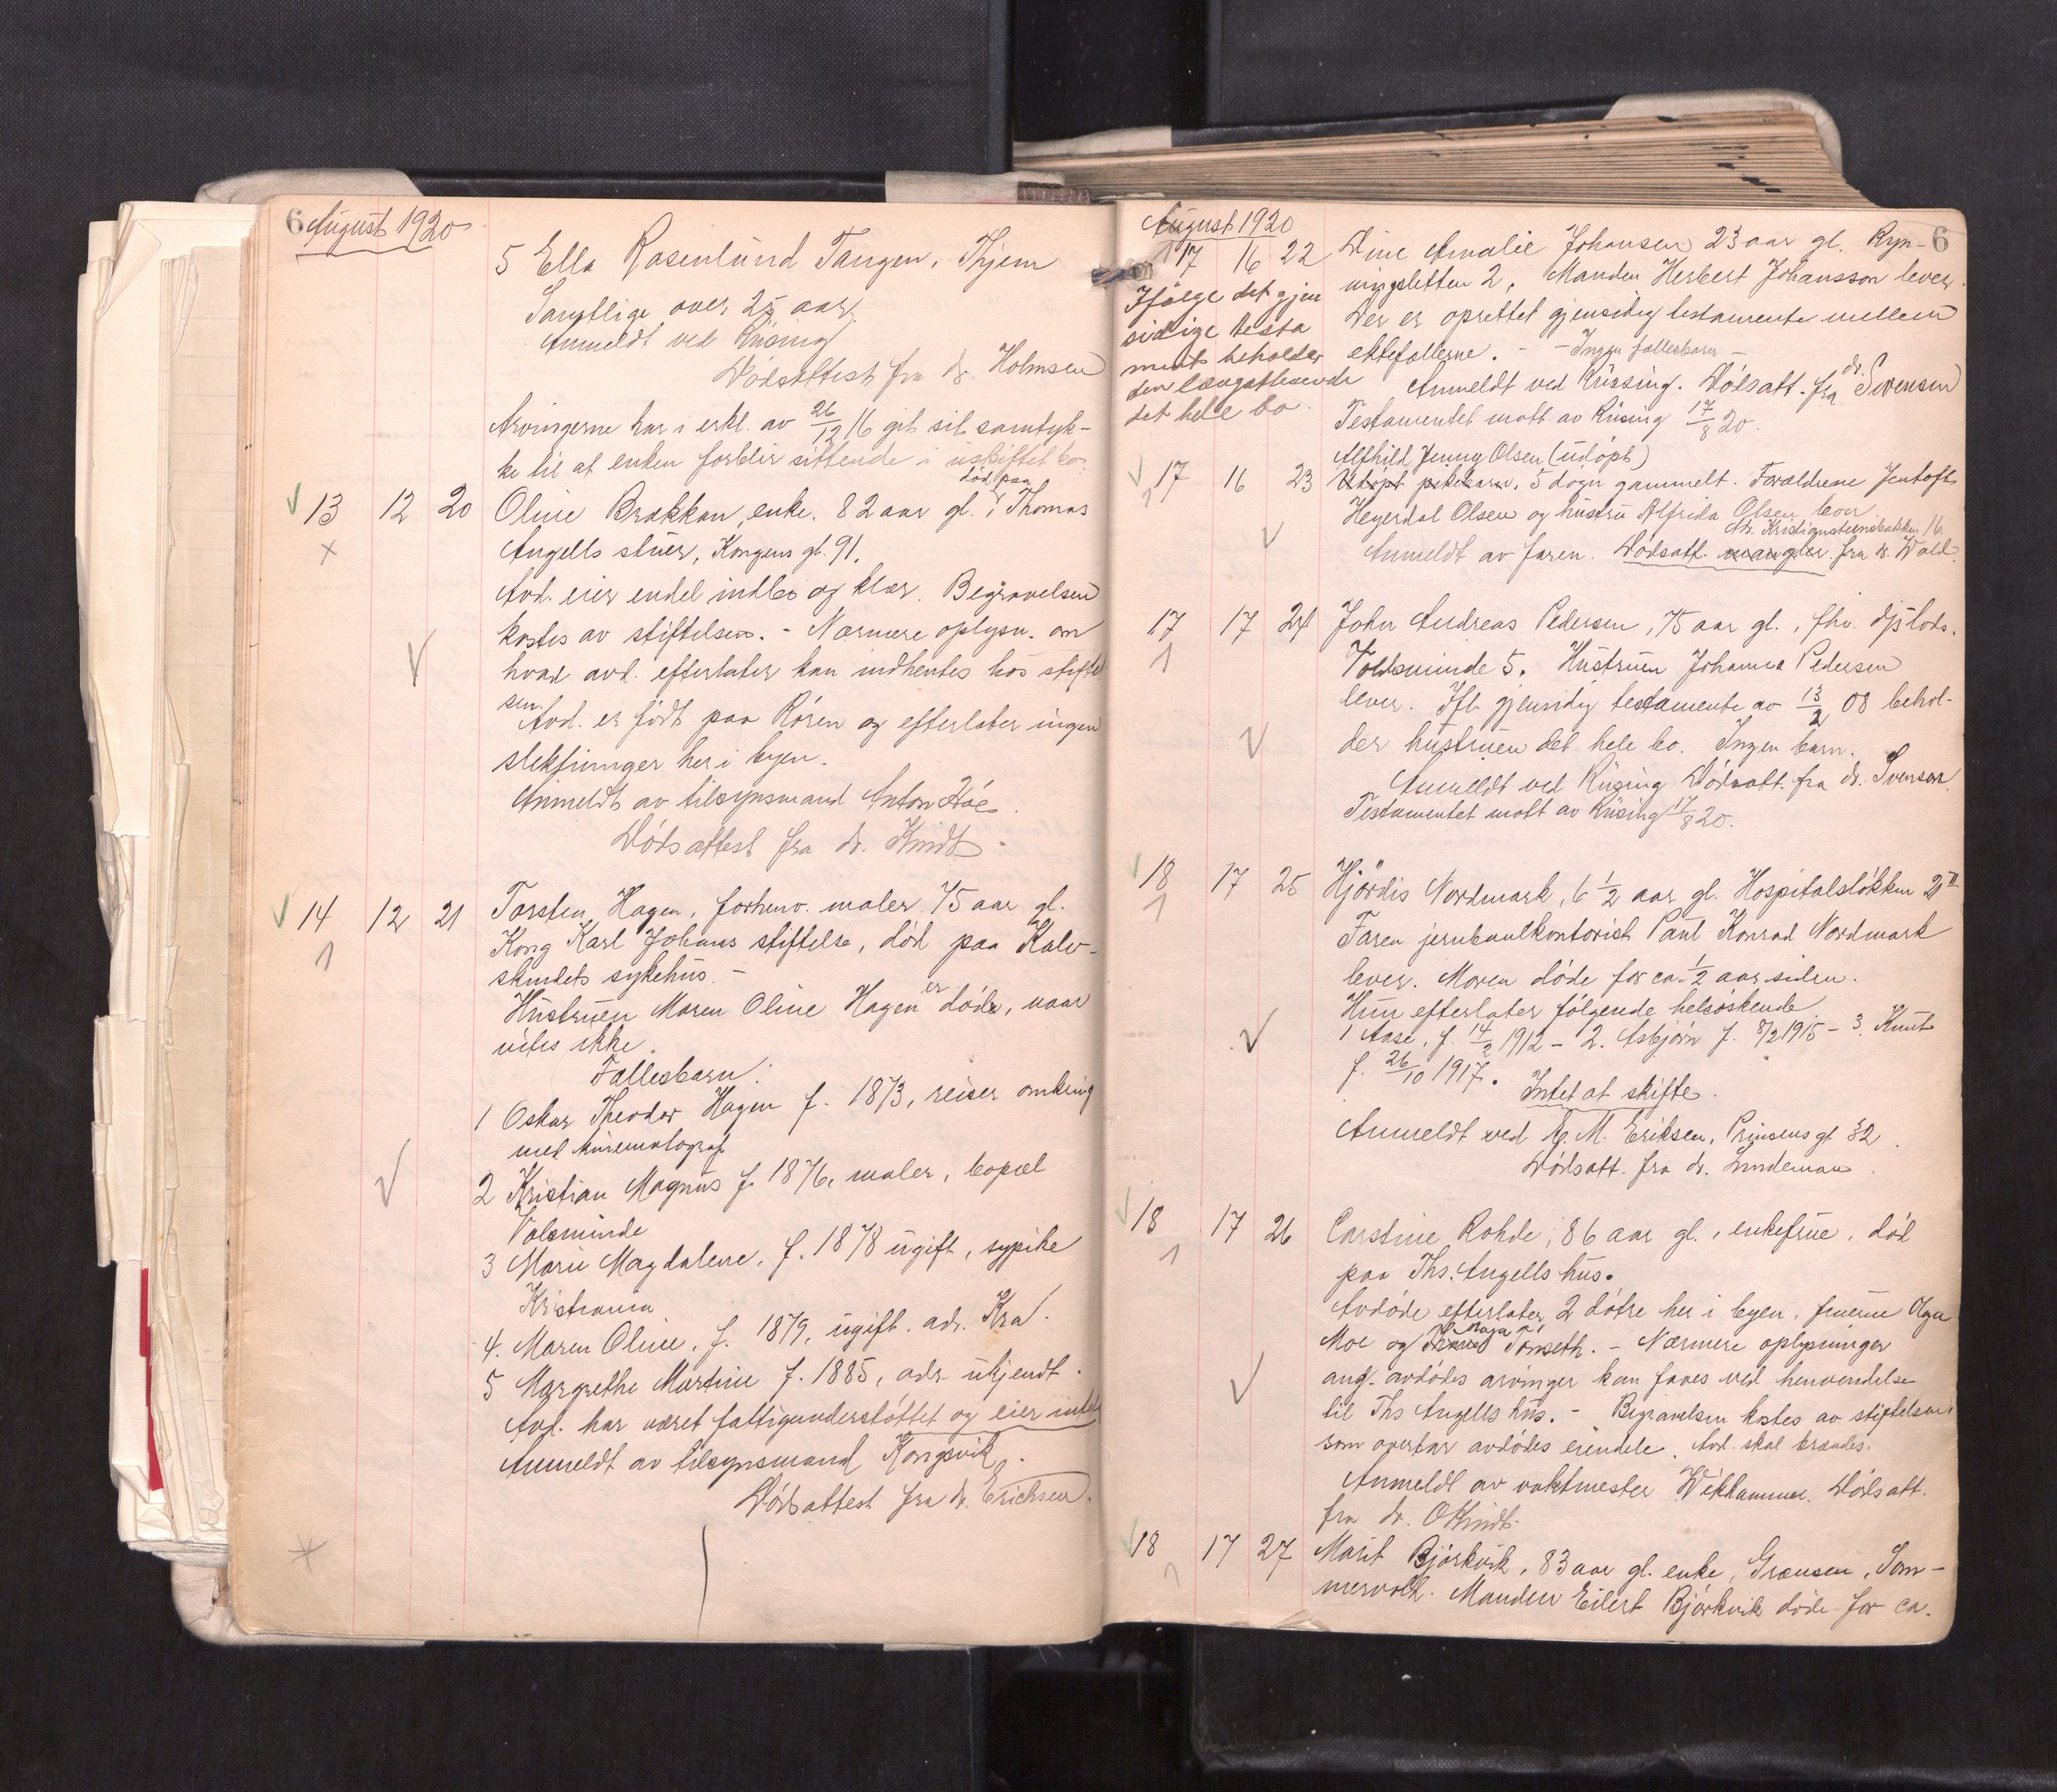 6 August 1920
5 Ella Rosenlund Tangen, Hjem
Samtlige over 25 aar.
Anmeldt ved Rusing
Dödsattest fra dr. Holmsen
Arvingerne har i erkl. av 26/12 16 git sit samtyk-
ke til at enken forblir sittende i uskiftet bo.
död paa
13 12 20 Oline Brækkan, enke. 82 aar gl. Thomas
Angells stuer, Kongens gt. 91.
Avd. eier endel indbo og klær. Begravelsen
kostes av stiftelsen. - Nærmere oplysn. om
hvad avd. efterlater kan indhentes hos stiftel
sen.
Avd. er födt paa Röros og efterlater ingen
slektninger her i byen.
Anmeldt av tilsynsmand Anton Höe.
Dödsattest fra dr. Kindt.
14 12 21 Torsten Hagen, forhenv. maler 75 aar gl.
Kong Karl Johans stiftelse, död paa Kalv-
skindets sykehus. -
Hustruen Maren Oline Hagen er död, naar
vites ikke.
Fællesbarn:
1 Oskar Theodor Hagen f. 1873, reiser omkring
med kinematograf
2 Kristian Magnus f. 1876, maler, bopæl
Volsminde
3 Marie Magdalene, f. 1878 ugift, sypike
Kristiania
4. Maren Oline, f. 1879, ugift. adr. Kra.
5 Margrethe Martine f. 1885, adr ukjendt.
Avd. har været fattigunderstöttet og eier intet
Anmeldt av tilsynsmand Kongsvik.
Dödsattest fra dr. Erichsen.
August 1920 6
17 16 22 Dine Amalie Johansen 23 aar gl. Ryn-
ningsletten 2, Manden Herbert Johansson lever.
Der er oprettet gjensidig testamente mellem
ektefællerne. - - Ingen fællesbarn -
Anmeldt ved Rüssing. Dödsatt. fra dr. Svensen
Testamentet mott. av Rusing 17/8 20.
Ifölge det gjen
sidige testa
mente beholder
den længstlevende
det hele bo.
Alfhild Jenny Olsen (udöpt)
17 16 23 Udöpt pikebarn, 5 dögn gammelt. Forældrene Jentoft
Heyerdal Olsen og hustru Alfrida Olsen bor
Kristiganstensbakken 16
Anmeldt av faren. Dödsatt. mangler fra dr. Wold.
17 17 24 John Andreas Pedersen, 75 aar gl., fhv.
Voldsminde 5. Hustruen Johanna Pedersen
lever. Ifl. gjensidig testamente av 13/2 08 behol-
der hustruen det hele bo. Ingen barn.
Anmeldt ved Rusing Dödsatt. fra dr. Svensen.
Testamentet mott av Rusing 17/8 20.
18 17 25 Hjördis Nordmark, 6 1/2 aar gl. Hospitalslökken 21 II
Faren jernbanekontorist Paul Konrad Nordmark
lever. Moren döde for ca. 1/2 aar siden.
Hun efterlater fölgende helsöskende
1 Aase, f. 14/2 1912 - 2. Asbjörn f. 8/2 1915 - 3. Knut
f. 26/10 1917. Intet at skifte.
Anmeldt ved M. Eriksen, Prinsens gt 32.
Dödsatt. fra dr. Lindeman.
18 17 26 Carstine Rohde, 86 aar gl., enkefrue, död
paa Ths. Angells hus.
Avdöde efterlater 2 dötre her i byen, fruerne Olga
Moe og Maja Tönseth. - Nærmere oplysninger
ang. avdödes arvinger kan faaes ved henvendelse
til Ths Angells hus. - Begravelsen kostes av stiftelsen,
som overtar avdödes eiendele. Avd. skal brændes.
Anmeldt av vaktmester Wikhammer. Dödsatt.
fra dr. O Kindt.
18 17 27 Marit Björkvik, 83 aar gl. enke, Grænsen, Som-
mervold. Manden Eilert Björkvik döde for ca.